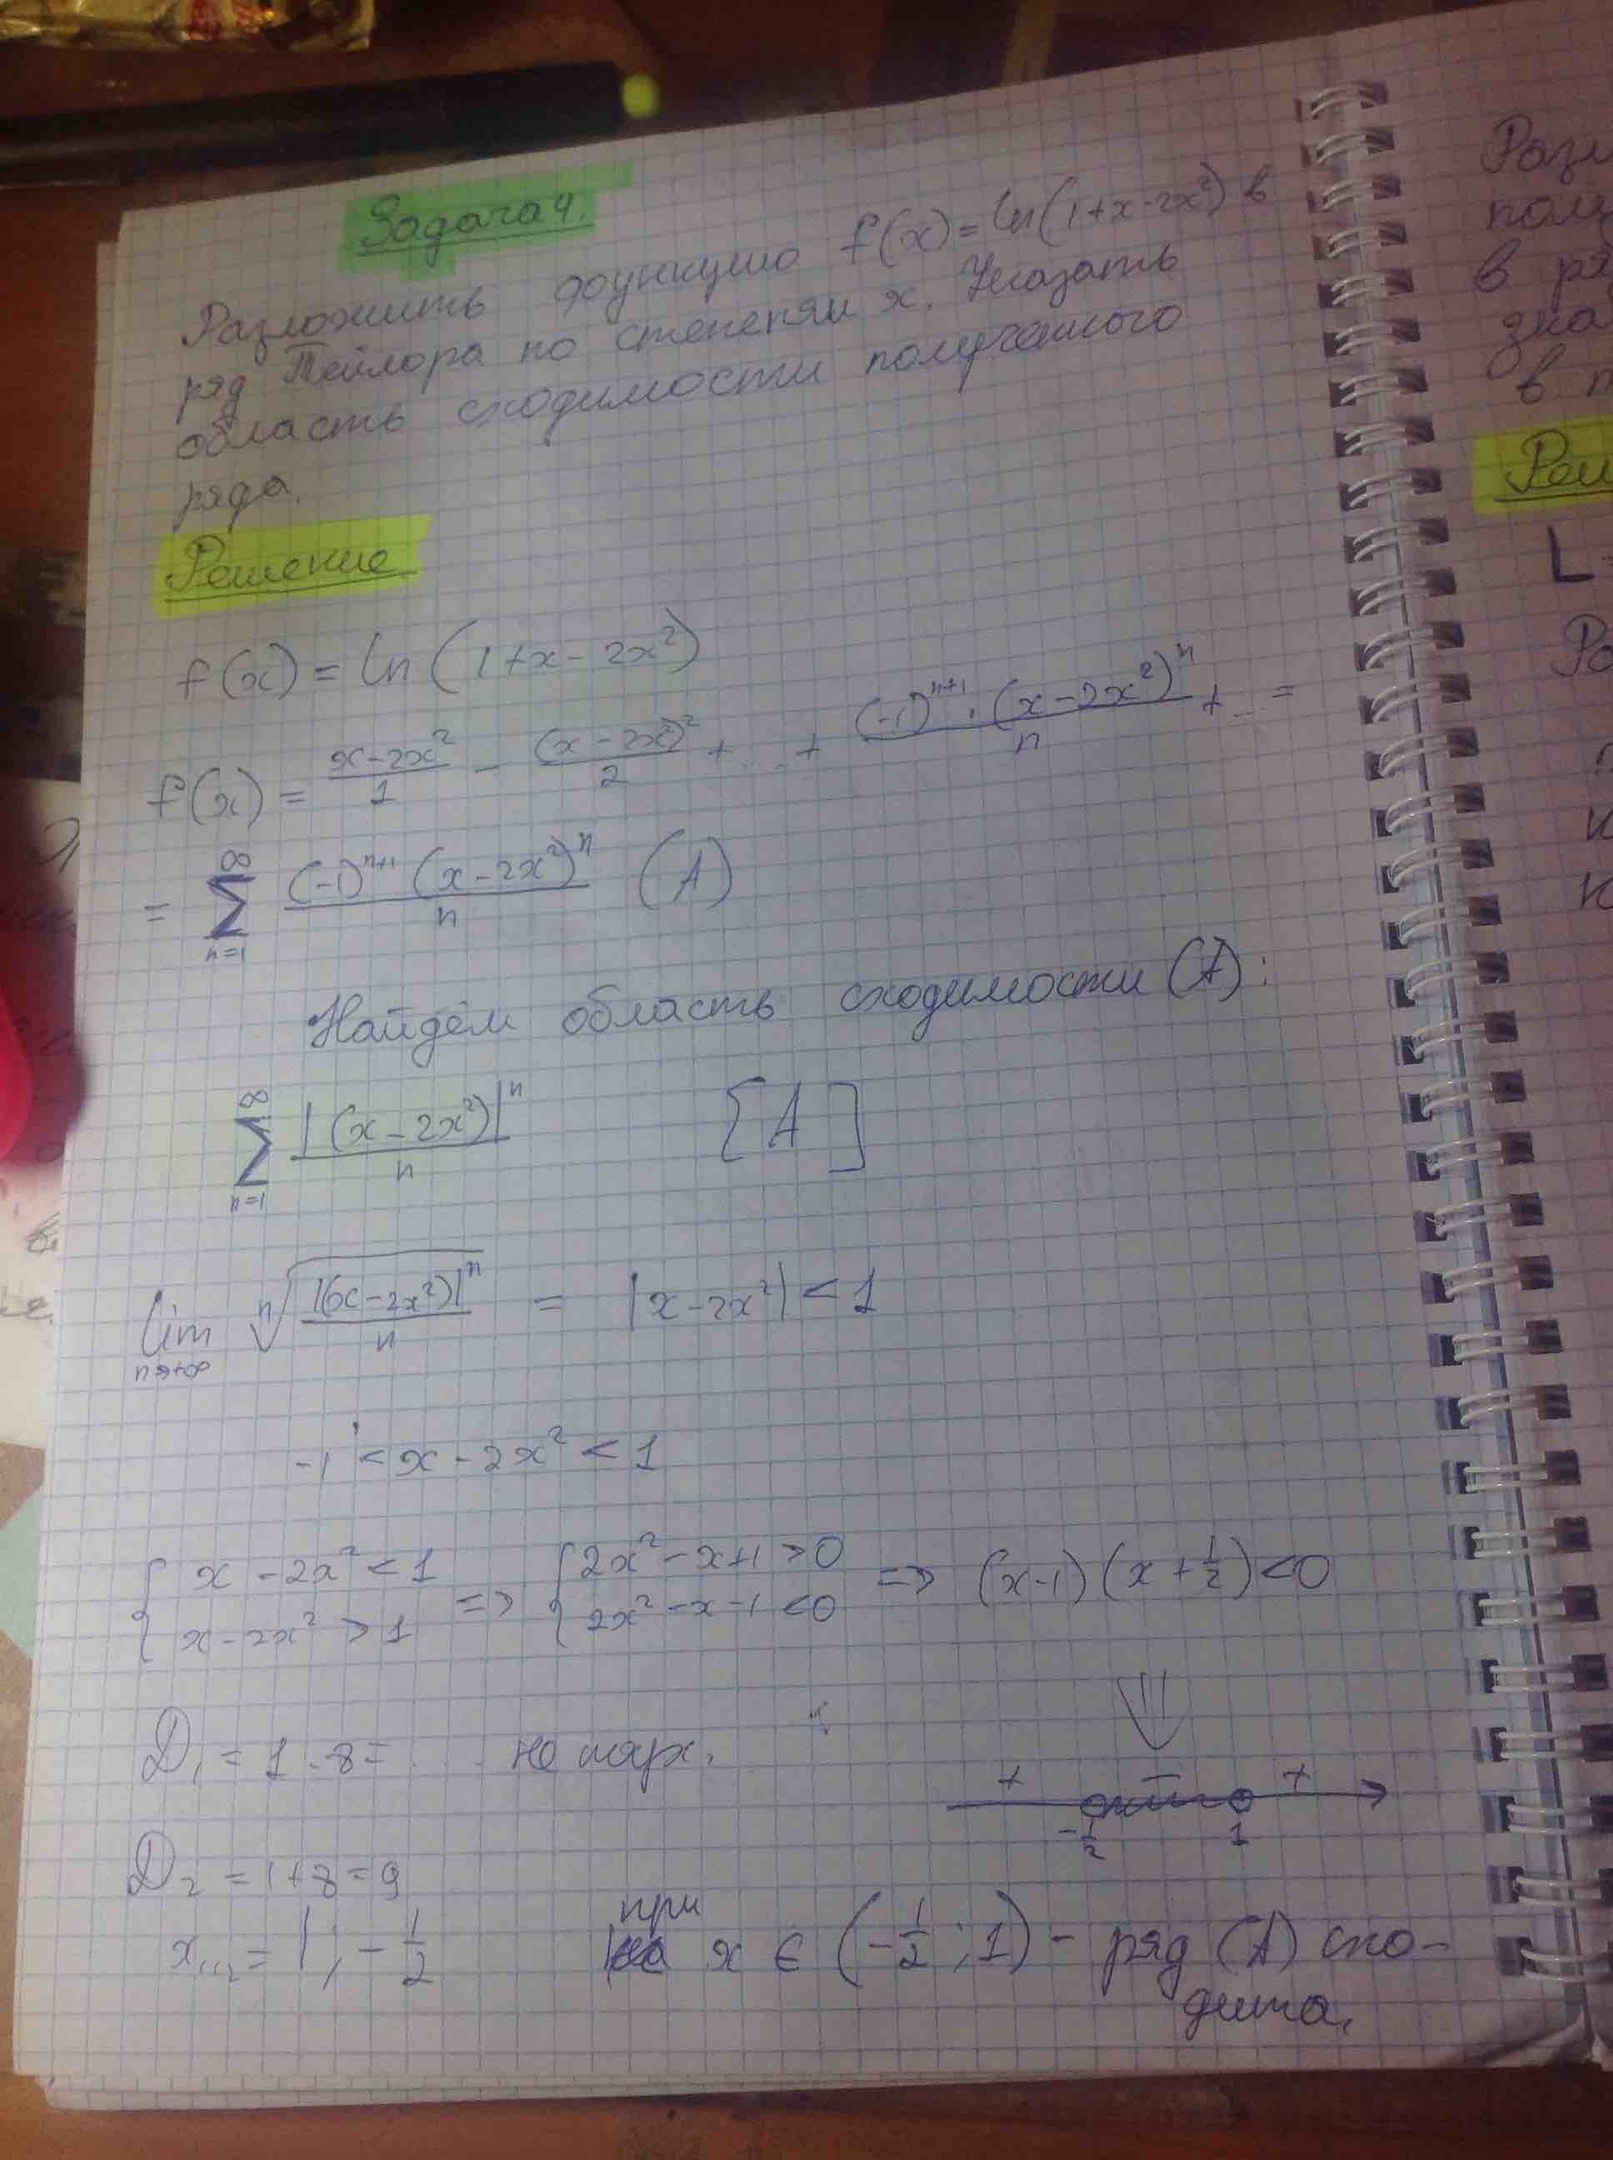 Задача 4.
Разложить функцию f(x) = ln(1+x-2x²) в
ряд Тейлора по степеням x. Указать
область сходимости полученного
ряда.
Решение
f(x) = ln (1+x-2x²)
f(x) = (x-2x²)/1 - (x-2x²)²/2 + ... + (-1)ⁿ⁺¹·(x-2x²)ⁿ/n + ... =
= ∑_{n=1}^{∞} (-1)ⁿ⁺¹(x-2x²)ⁿ/n (A)
Найдём область сходимости (A):
∑_{n=1}^{∞} |(x-2x²)|ⁿ/n [A]
lim_{n→+∞} ⁿ√(|(x-2x²)|ⁿ/n) = |x-2x²| < 1
-1 < x-2x² < 1
{ x-2x² < 1 => { 2x²-x+1 > 0 => (x-1)(x+1/2) < 0
{ x-2x² > 1 { 2x²-x-1 < 0
⇓
D₁ = 1-8 = ...
+ - +
-1/2 1
D₂ = 1+8 = 9
x₁,₂ = 1; -1/2
при x ∈ (-1/2; 1) - ряд (A) схо-
дится.
Разл
в ря
зна
в т
Реш
L